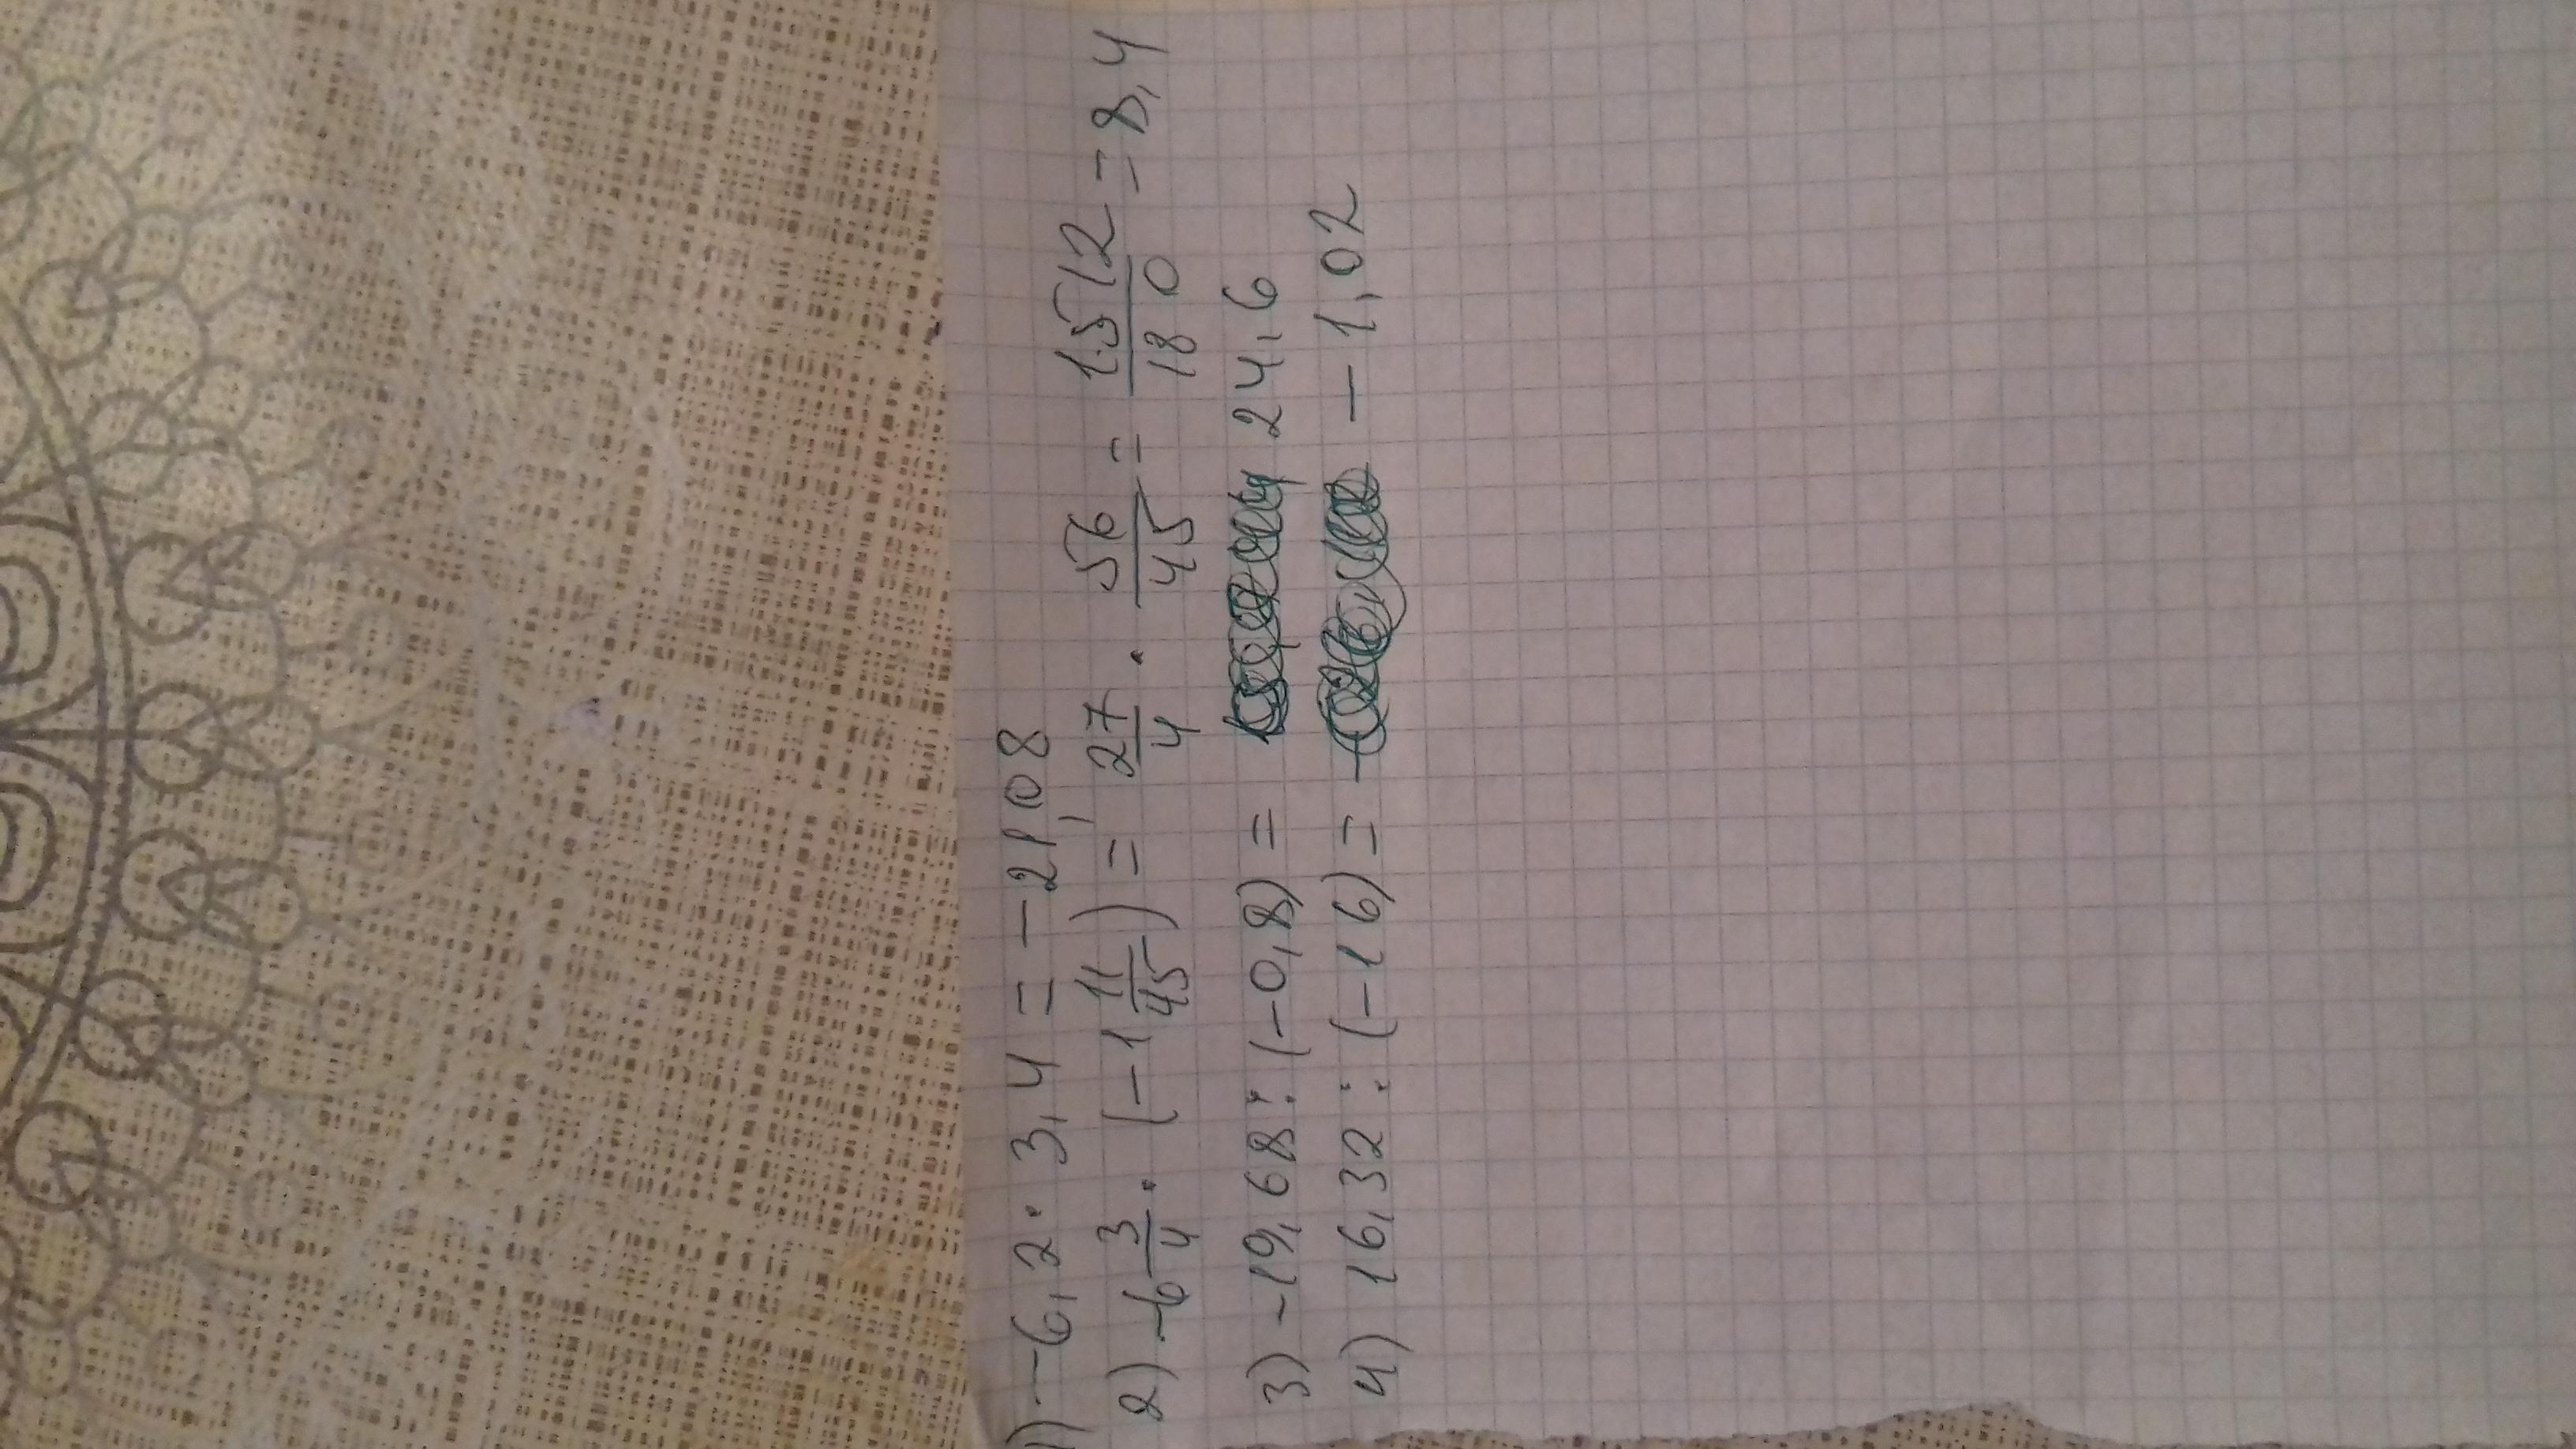 1) -6,2 · 3,4 = -21,08
2) -6 3/4 · (-1 11/45) = 27/4 · 56/45 = 1512/180 = 8,4
3) -19,68 : (-0,8) = 24,6
4) 16,32 : (-16) = -1,02